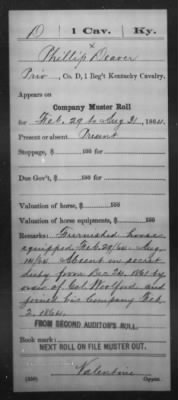 D | 1 Cav. | Ky.
x
Phillip Deaver
Priv, Co. D, 1 Reg't Kentucky Cavalry.
Appears on
Company Muster Roll
for Feb. 29 to Aug 31, 1864.
Present or absent, Present
Stoppage, $ 100 for
Due Gov't, $ 100 for
Valuation of horse, $ 100
Valuation of horse equipments, $ 100
Remarks: Furnished horse
equipped Feb. 29/64 Aug.
16/64. Absent on secret
duty from Dec 24, 1861 by
order of Col Woolford and
joined his Company Feb
2, 1864.
FROM SECOND AUDITOR'S ROLL.
Book mark:
NEXT ROLL ON FILE MUSTER OUT.
Valentine
(358) Copyist.